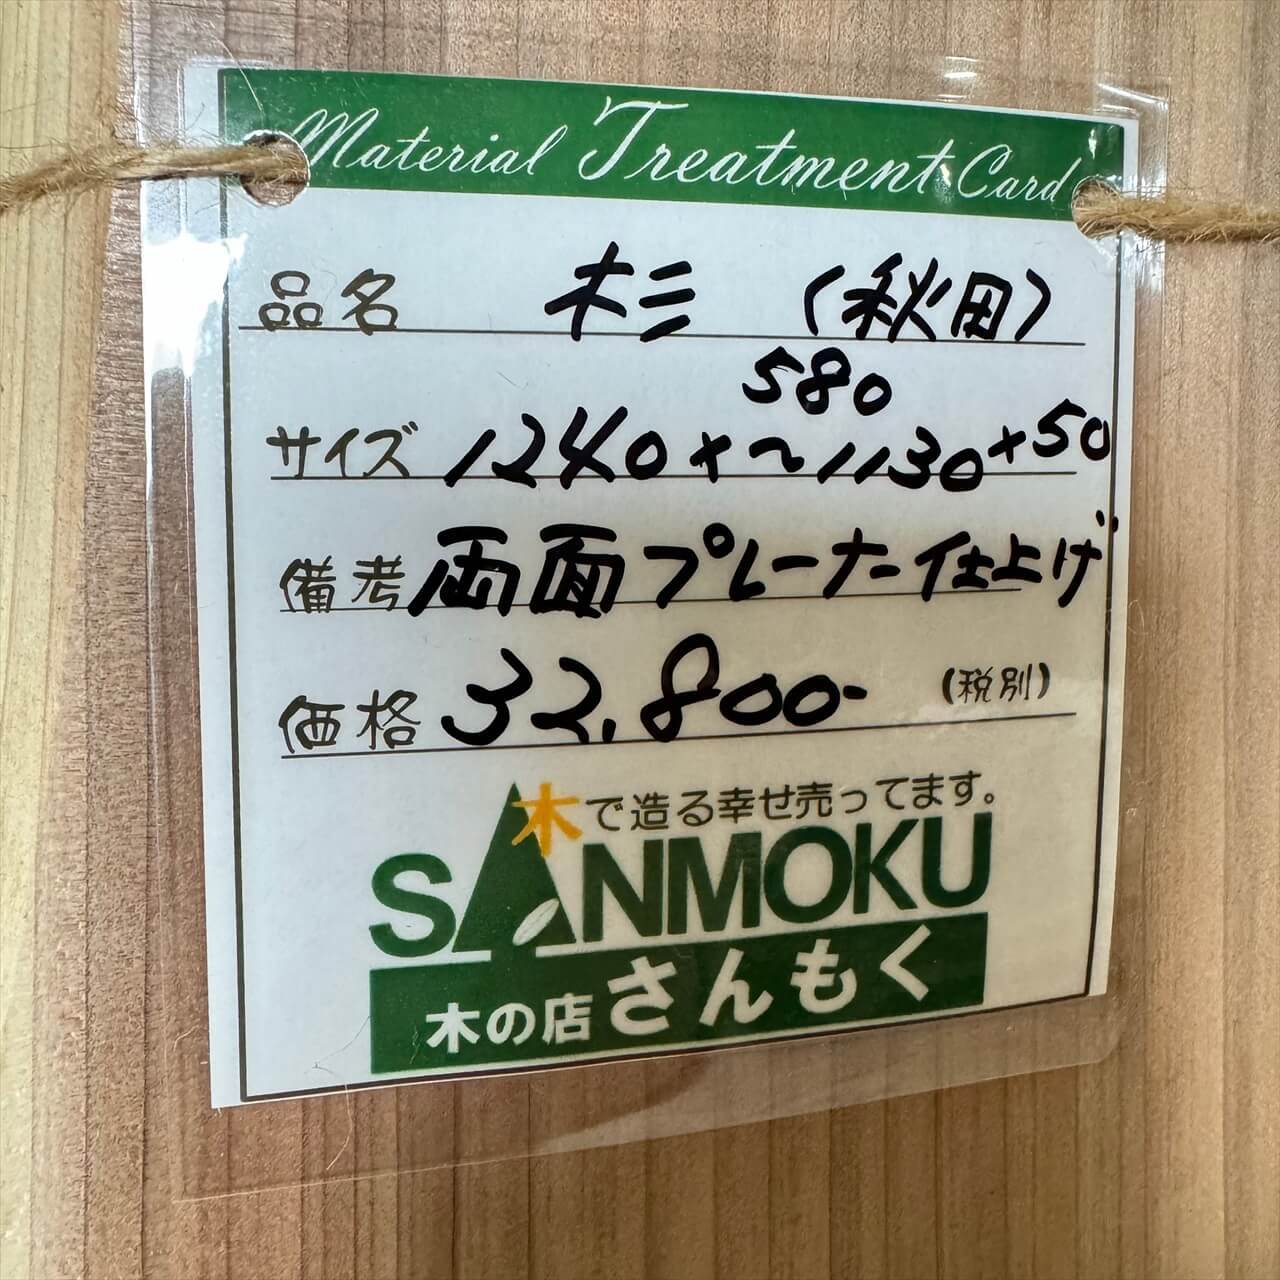 Material Treatment Card
品名 杉 (秋田)
580
サイズ 1240×~1130×50
備考 両面プレーナー仕上げ
価格 32,800- (税別)
木で造る幸せ売ってます。
SANMOKU
木の店さんもく